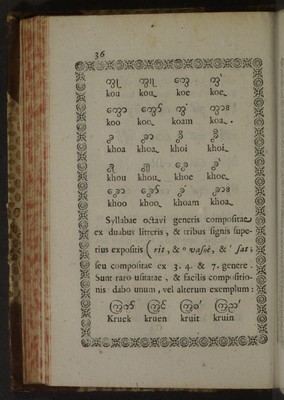 36
ကွု ကွူ ကွေ ကွဲ
kou kou_ koe koe_
ကွော ကွော် ကွံ ကွား
koo koo_ koam koa_ .
khoa khoa_ khoi khoi_
khou khou_ khoe khoe_
khoo khoo_ khoam khoa_
Syllabae octavi generis compositae
ex duabus litteris, & tribus signis supe-
rius expositis ( rit, & o vasoè, & ' sat;
seu compositae ex 3. 4. & 7. genere.
Sunt raro usitatae, & facilis compositio-
nis dabo unum, vel alterum exemplum:
Kruek kruen kruit kruin